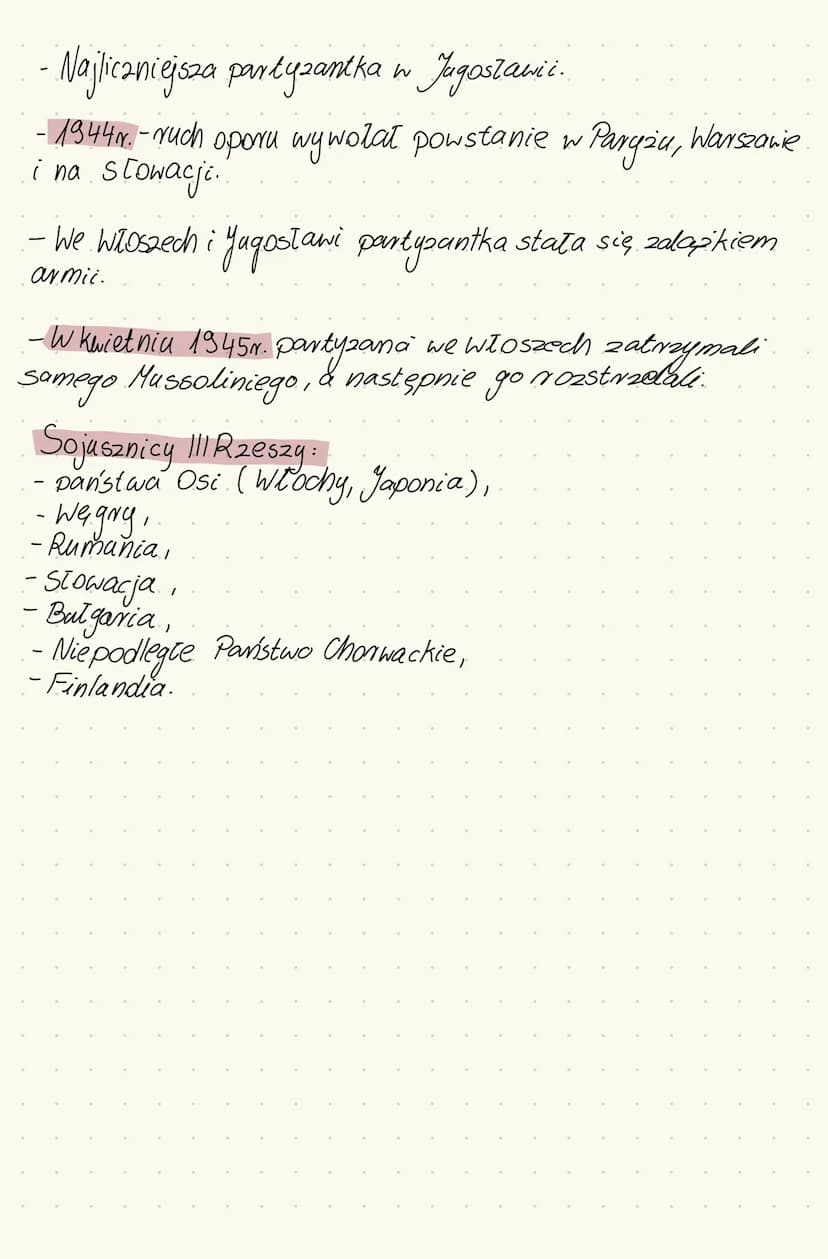 - Najliczniejsza partyzantka w Jugosławii.
- 1944r. - ruch oporu wywołał powstanie w Paryżu, Warszawie
i na Słowacji.
- We Włoszech i Jugosławi partyzantka stała się zalążkiem
armii.
- W kwietniu 1945r. partyzanci we Włoszech zatrzymali
samego Mussoliniego, a następnie go rozstrzelali.
Sojusznicy III Rzeszy:
- państwa Osi (Włochy, Japonia),
- Węgry,
- Rumania,
- Słowacja,
- Bułgaria,
- Niepodległe Państwo Chorwackie,
- Finlandia.